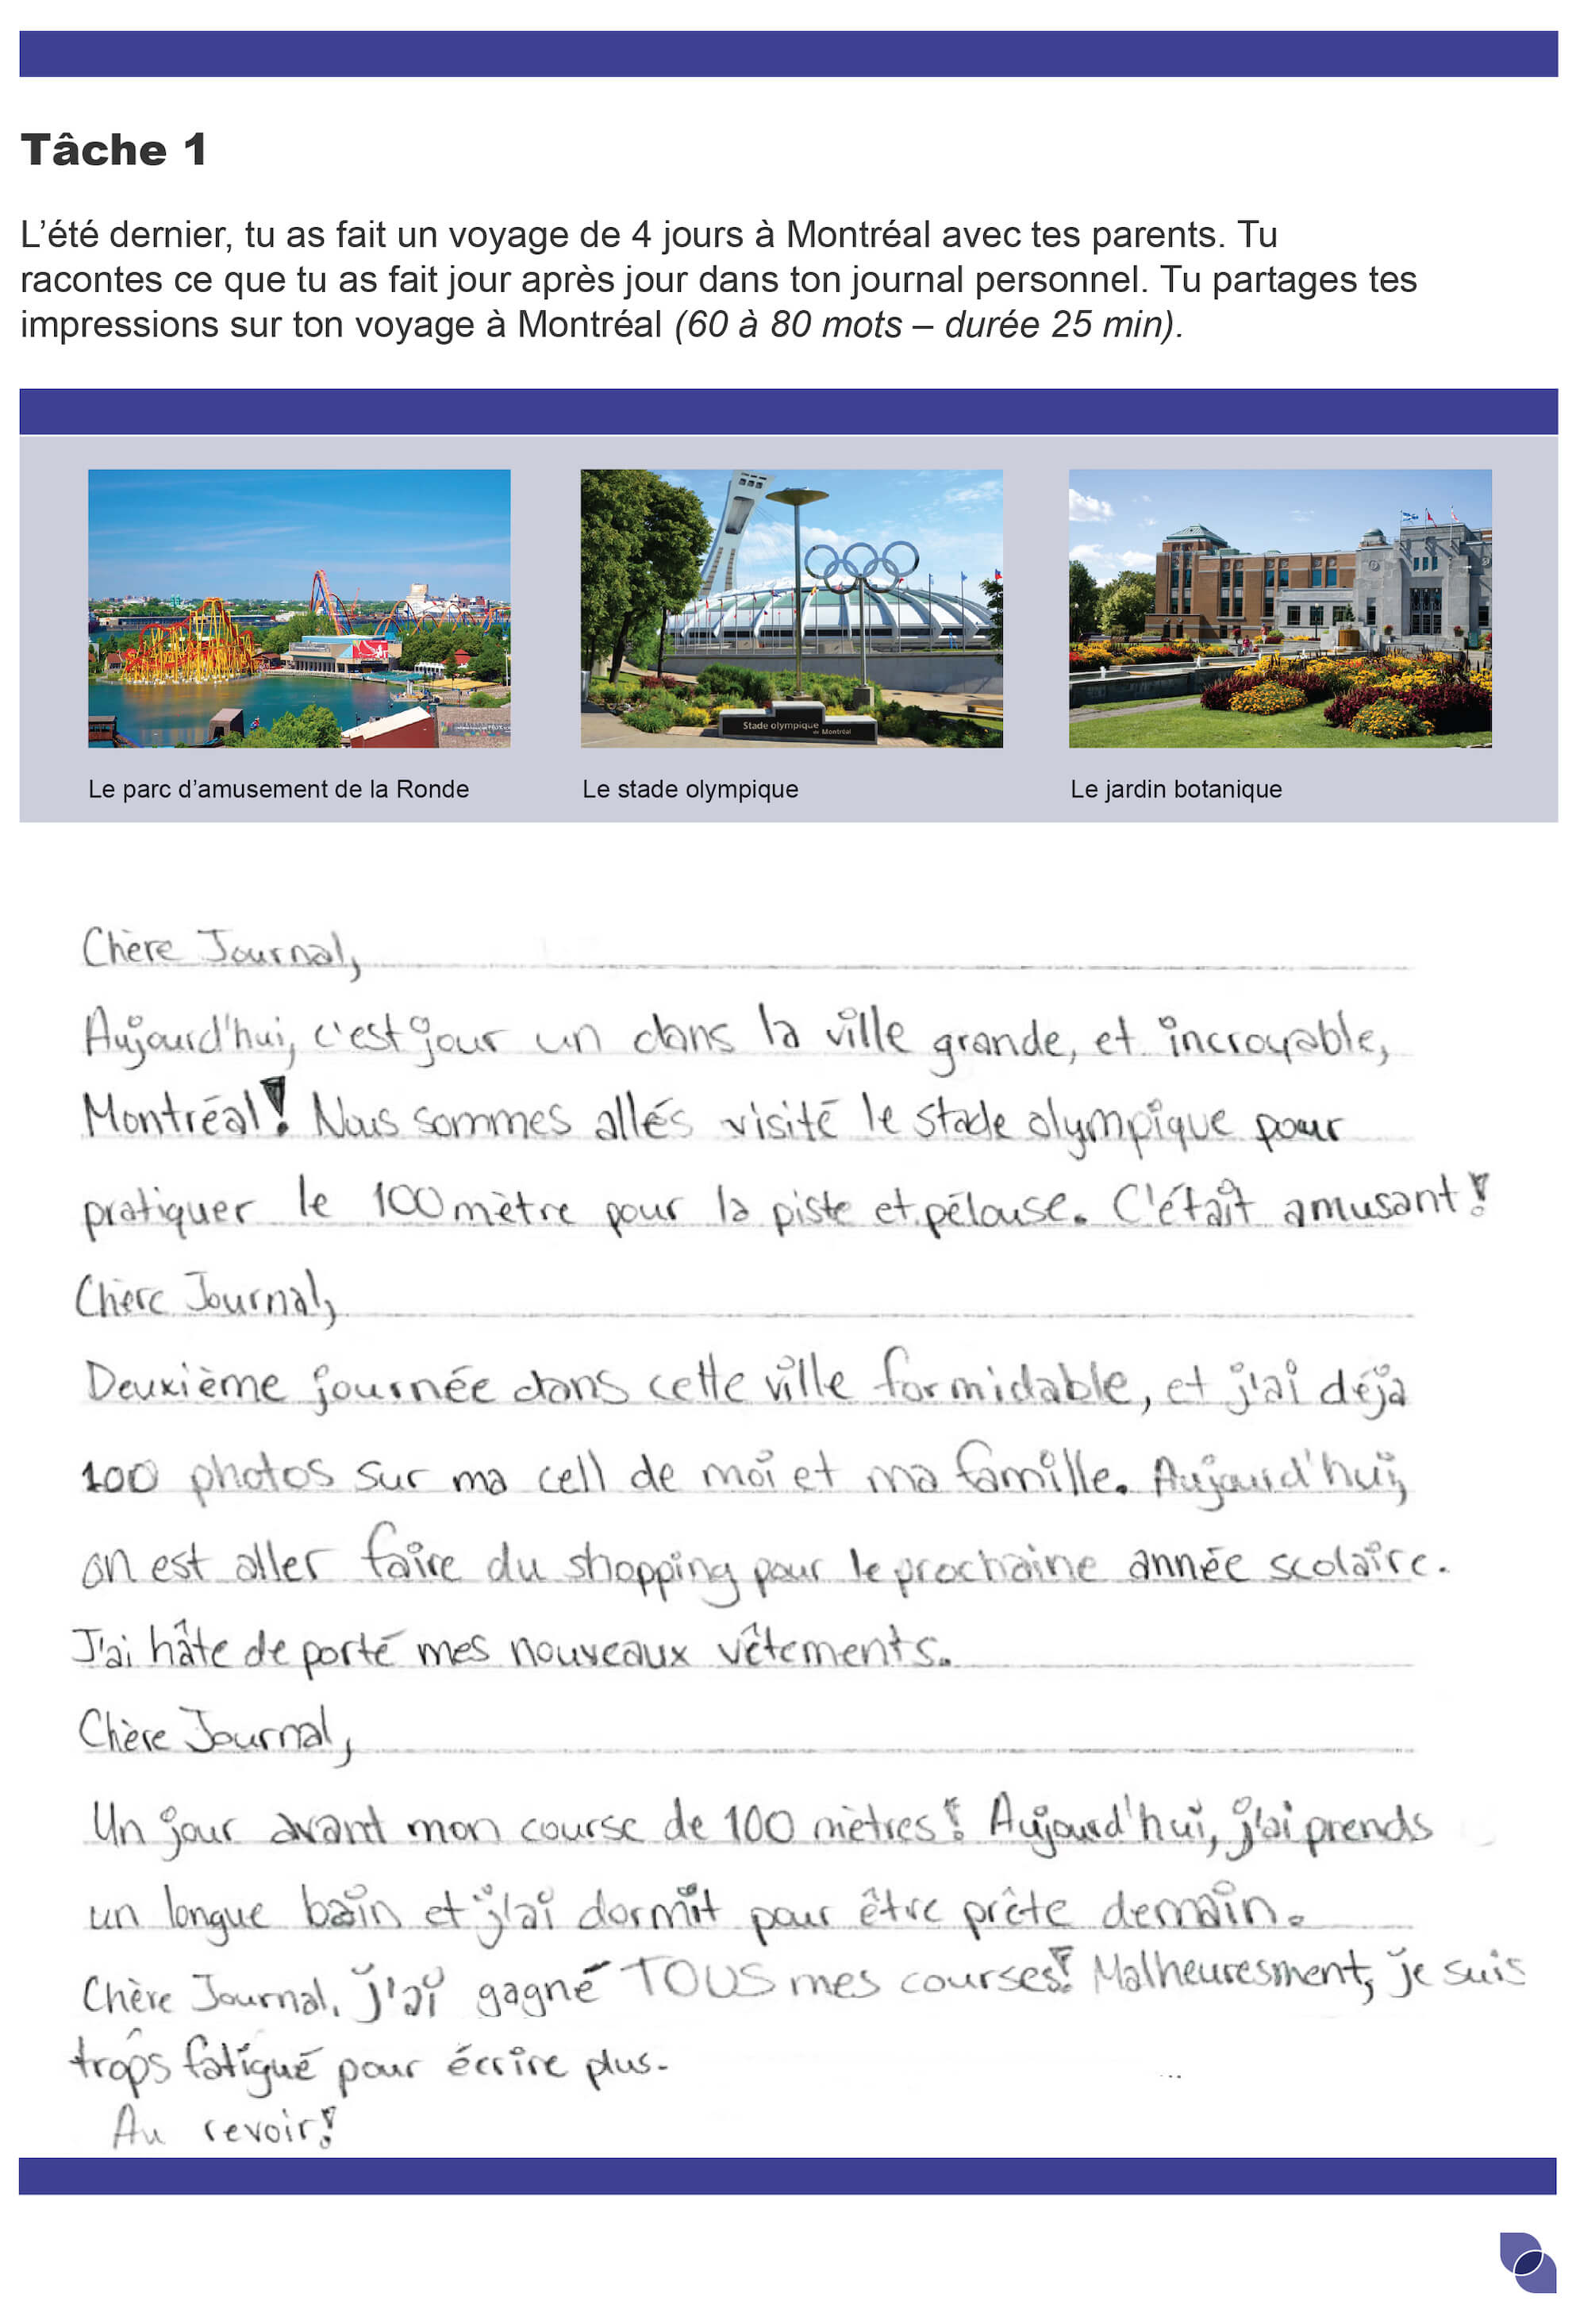 Tâche 1
L'été dernier, tu as fait un voyage de 4 jours à Montréal avec tes parents. Tu
racontes ce que tu as fait jour après jour dans ton journal personnel. Tu partages tes
impressions sur ton voyage à Montréal (60 à 80 mots – durée 25 min).
Stade olympique
de Montréal
Le parc d'amusement de la Ronde
Le stade olympique
Le jardin botanique
Chère Journal,
Aujourd'hui, c'est jour un dans la ville grande, et incroyable,
Montréal! Nous sommes allés visité le stade olympique pour
pratiquer le 100 mètre pour la piste et pélouse. C'était amusant!
Chère Journal,
Deuxième journée dans cette ville formidable, et j'ai déja
100 photos sur ma cell de moi et ma famille. Aujourd'hui,
on est aller faire du shopping pour le prochaine année scolaire.
J'ai hâte de porté mes nouveaux vêtements.
Chère Journal,
Un jour avant mon course de 100 mètres! Aujourd'hui, j'ai prends
un longue bain et j'ai dormit pour être prête demain.
Chère Journal, j'ai gagné TOUS mes courses! Malheuresment, je suis
trops fatigué pour écrire plus.
Au revoir!